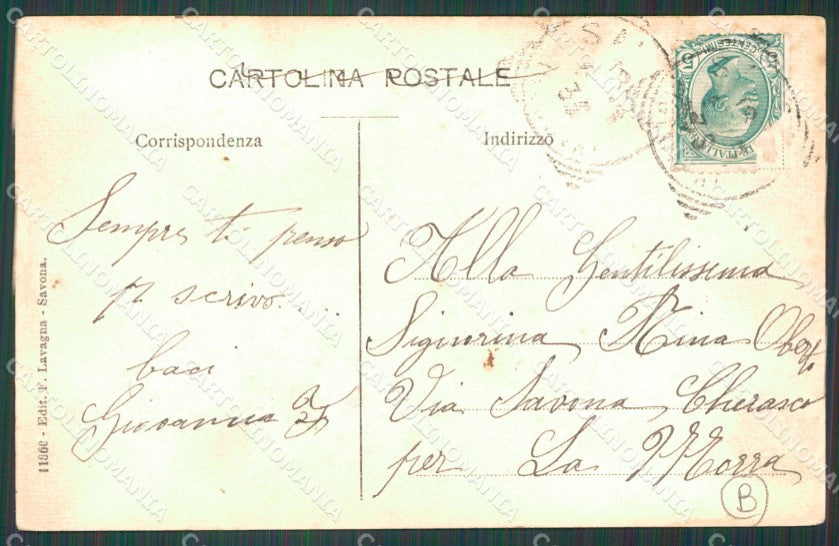 CARTOLINA POSTALE
Corrispondenza
Indirizzo
Sempre ti penso
scrivo....
baci
Giovanna
Alla Gentilissima
Signorina Nina Oberto
Via Savona Cherasco
per La Morra
11860 - Edit. F. Lavagna - Savona.
CENTESIMI 5
B
CARTOLINOMANIA